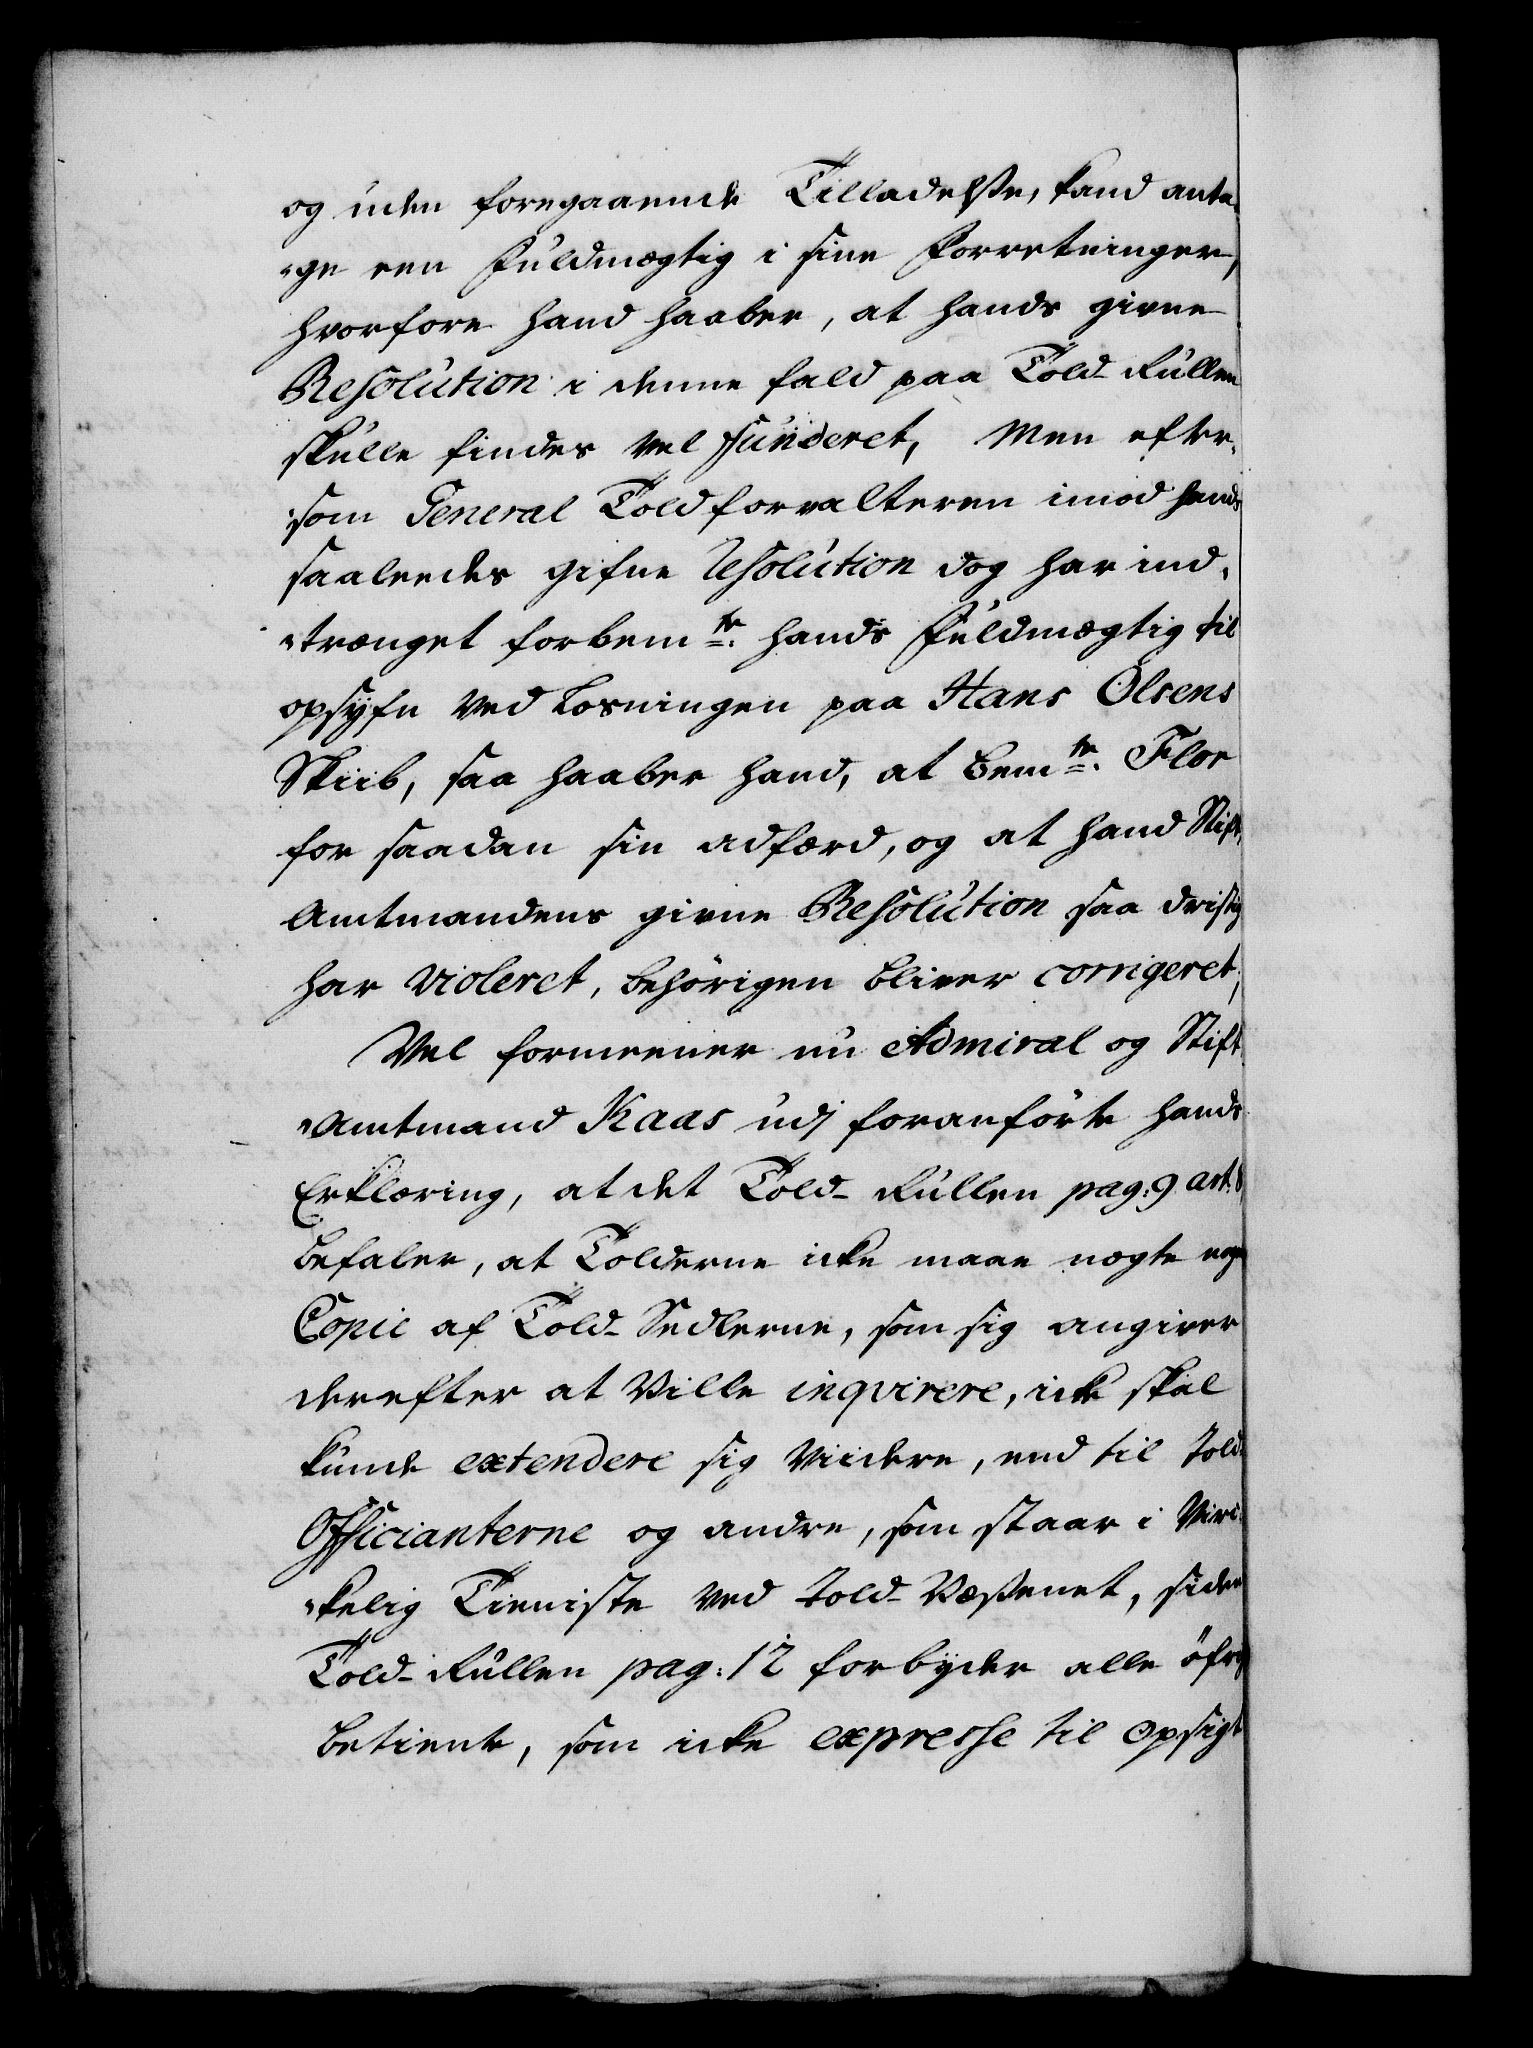 og uden foregaaende Tilladelsse, kand anta-
-ge een Fuldmægtig i sine Forretninger,
hvorfore hand haaber, at hands givne
Resolution i denne fald paa Told-Rullen
skulle findes Vel funderet, Men efter-
-som General Toldforvalteren imod hands
saaleedes gifne Resolution dog har ind-
-trænget forbemte. hands Fuldmægtig til
opsÿfn Ved Losningen paa Hans Olsens
Skiib, saa haaber hand, at bemte. Flor
for saadan sin adfærd, og at hand Stift
Amtmandens givne Resolution saa dristig
har violeret, behörigen bliver corrigeret,
Vel formeener nu Admiral og Stift
-Amtmand Kaas udj foranförte hands
Erklæring, at det Told-Rullen pag: 9 art: 8
befaler, at Tolderne icke maae nægte nogen
Copie af Told-Sedlerne, som sig angiver
derefter at Ville inqvirere, icke skal
kunde extendere sig Viidere, end til Told-
Officianterne og andre, som staar i Vir-
-kelig Tieniste Ved Told-Væßenet, siden
Told-Rullen pag: 12 forbÿder alle öfrig
betiente, som icke expresse til Opsigt